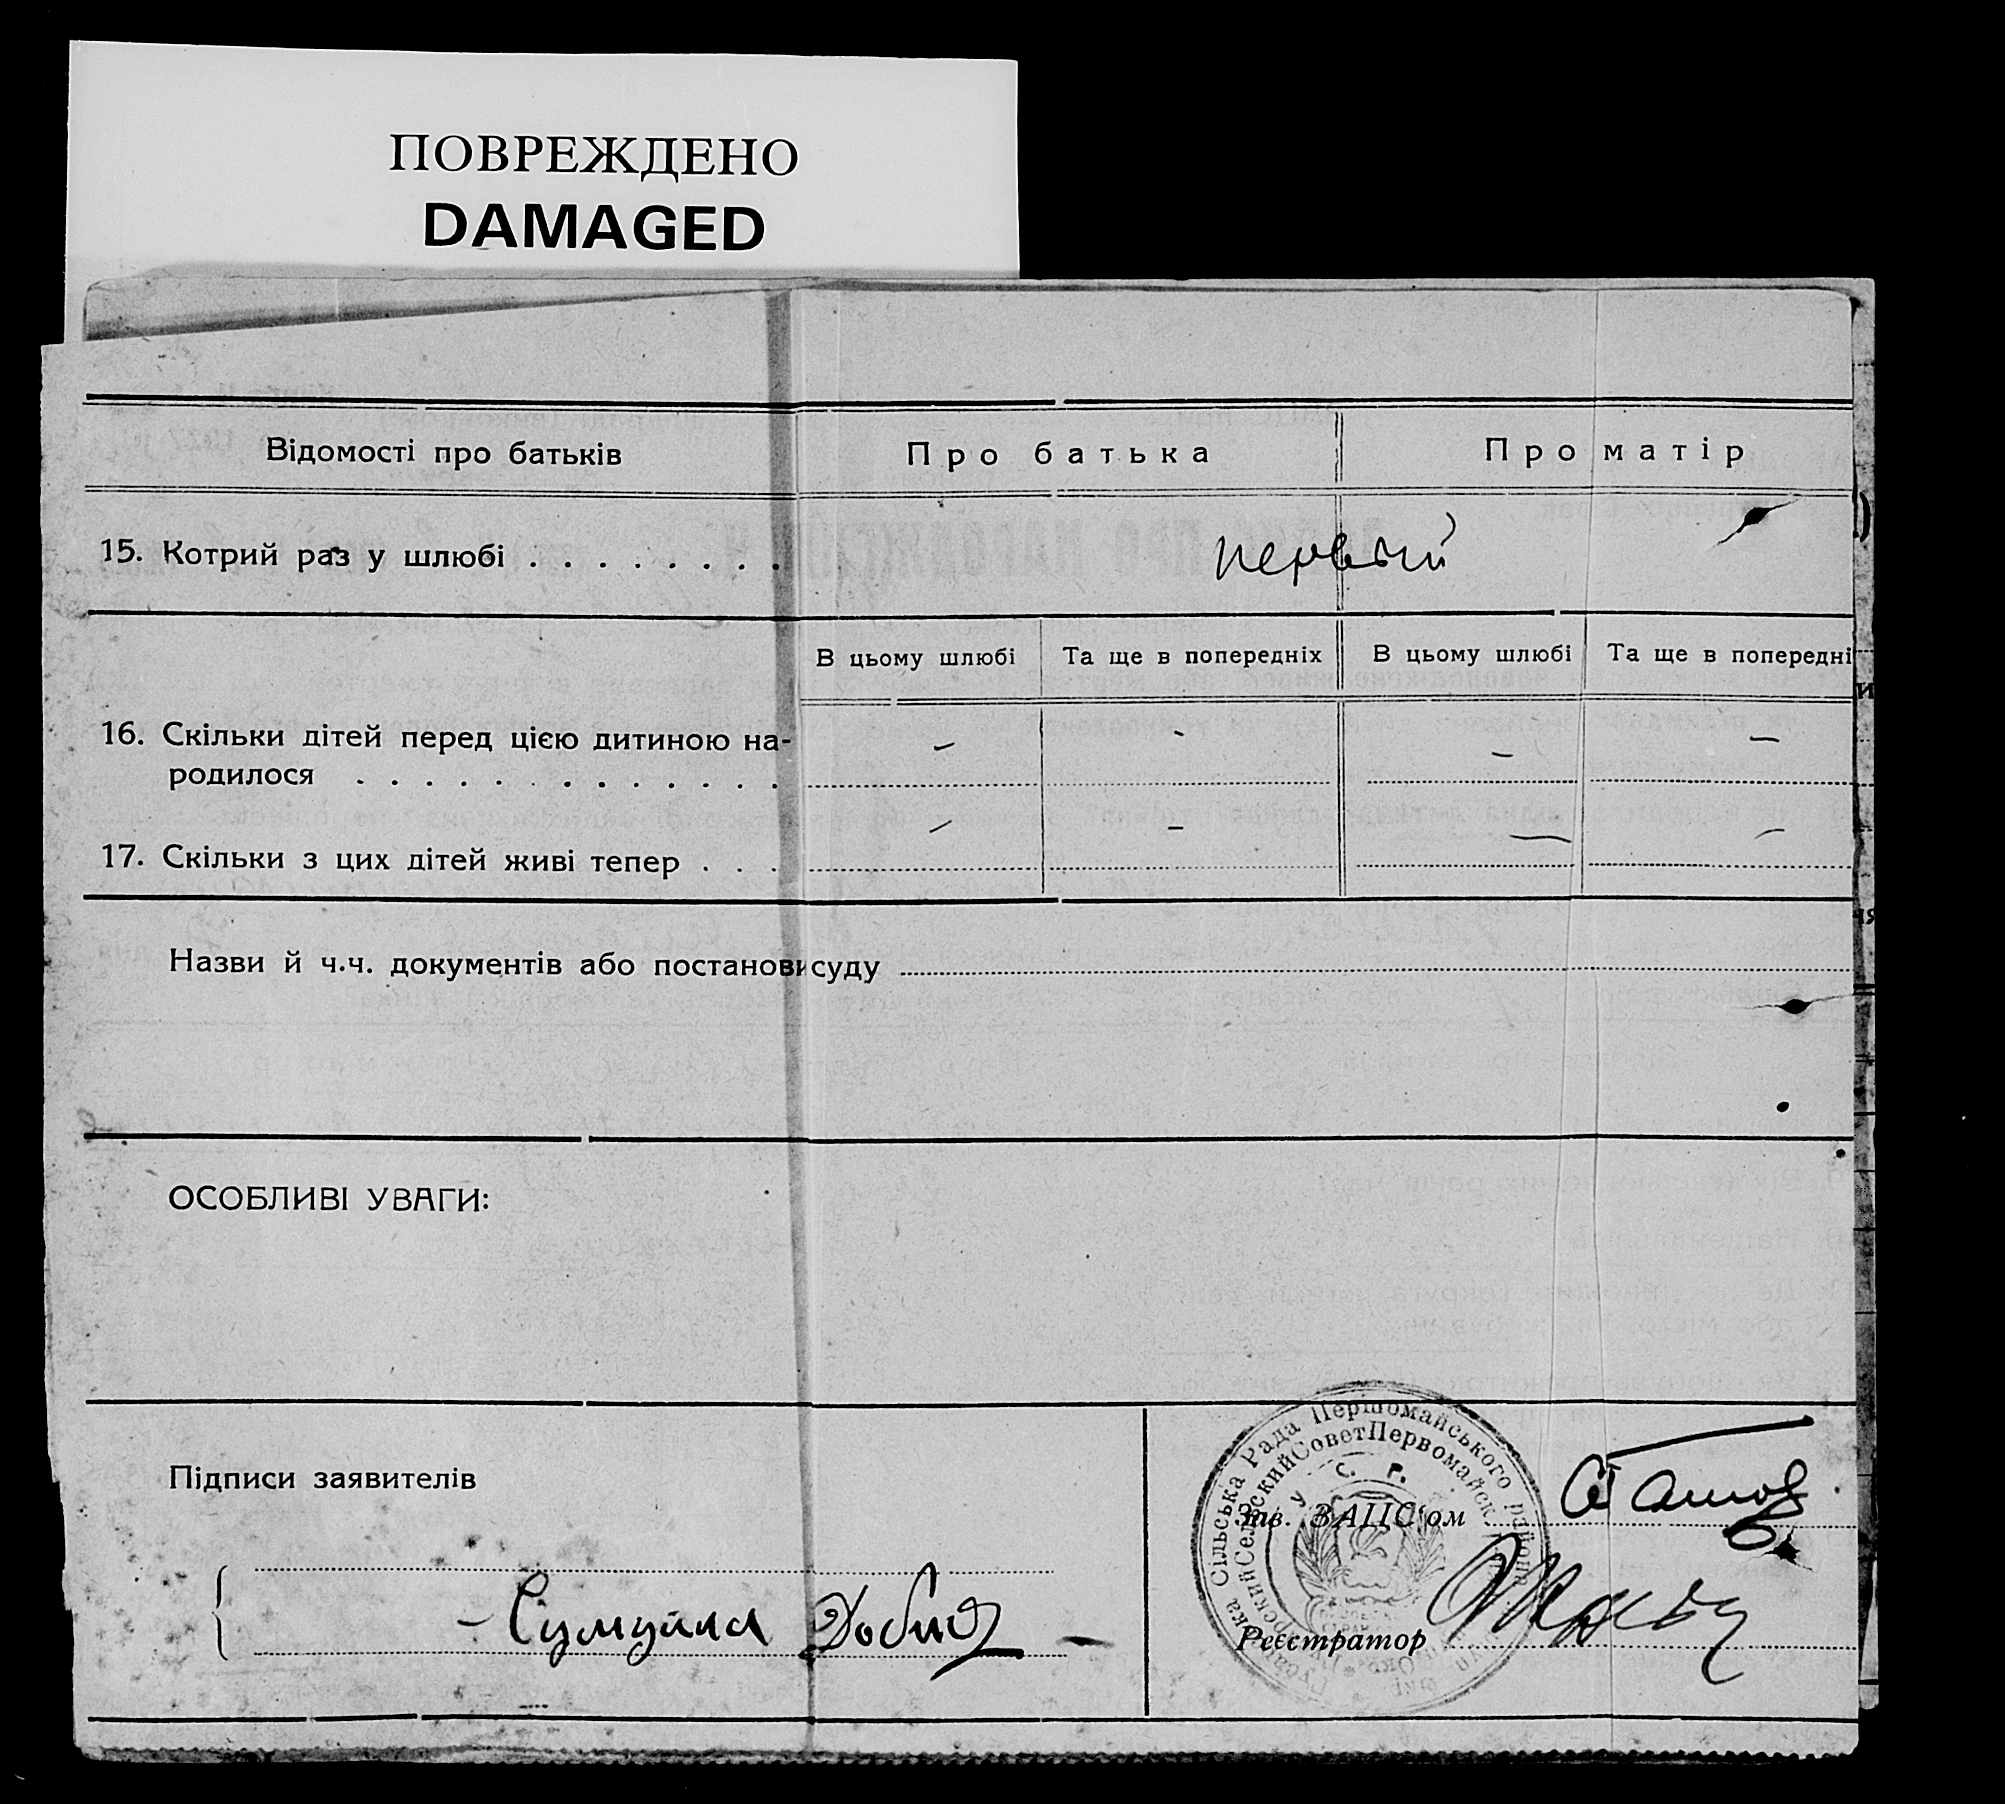 ПОВРЕЖДЕНО
DAMAGED
Відомості про батьків
Про батька
Про матір
15. Котрий раз у шлюбі . . . . . . . .
первый
В цьому шлюбі
Та ще в попередніх
В цьому шлюбі
Та ще в попередні
16. Скільки дітей перед цією дитиною на-
родилося . . . . . . . . . . . . .
– - – –
17. Скільки з цих дітей живі тепер . . .
– – – –
Назви й ч.ч. документів або постанови суду
ОСОБЛИВІ УВАГИ:
Сільська Рада Першомайського району
Сельский Совет Первомайск
У. С. Р.
Підписи заявителів
Зав. ЗАЦС'ом
Реєстратор